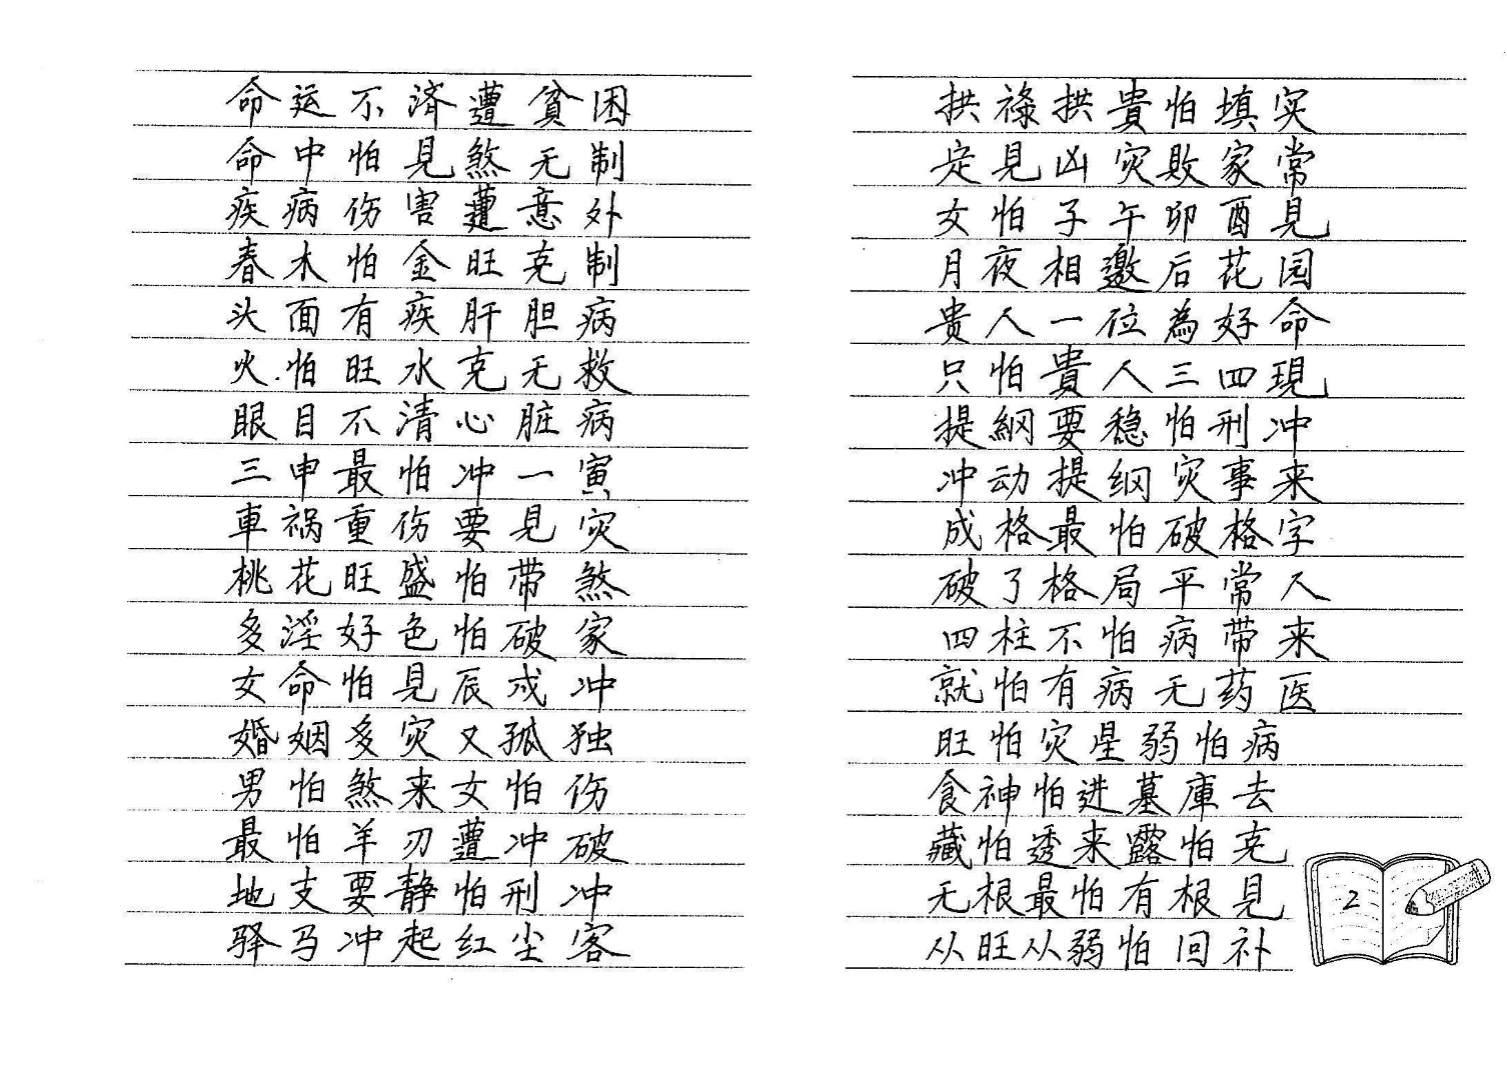 命运不済遭貧困
命中怕見煞无制
疾病伤害遭意外
春木怕金旺克制
头面有疾肝胆病
火怕旺水克无救
眼目不清心脏病
三申最怕冲一寅
車祸重伤要見灾
桃花旺盛怕带煞
多淫好色怕破家
女命怕見辰戌冲
婚姻多灾又孤独
男怕煞来女怕伤
最怕羊刃遭冲破
地支要静怕刑冲
驿马冲起红尘客
拱祿拱貴怕填实
定見凶灾敗家常
女怕子午卯酉見
月夜相邀后花园
贵人一位為好命
只怕貴人三四現
提綱要稳怕刑冲
冲动提纲灾事来
成格最怕破格字
破了格局平常人
四柱不怕病带来
就怕有病无药医
旺怕灾星弱怕病
食神怕进墓庫去
藏怕透来露怕克
无根最怕有根見
从旺从弱怕回补
2